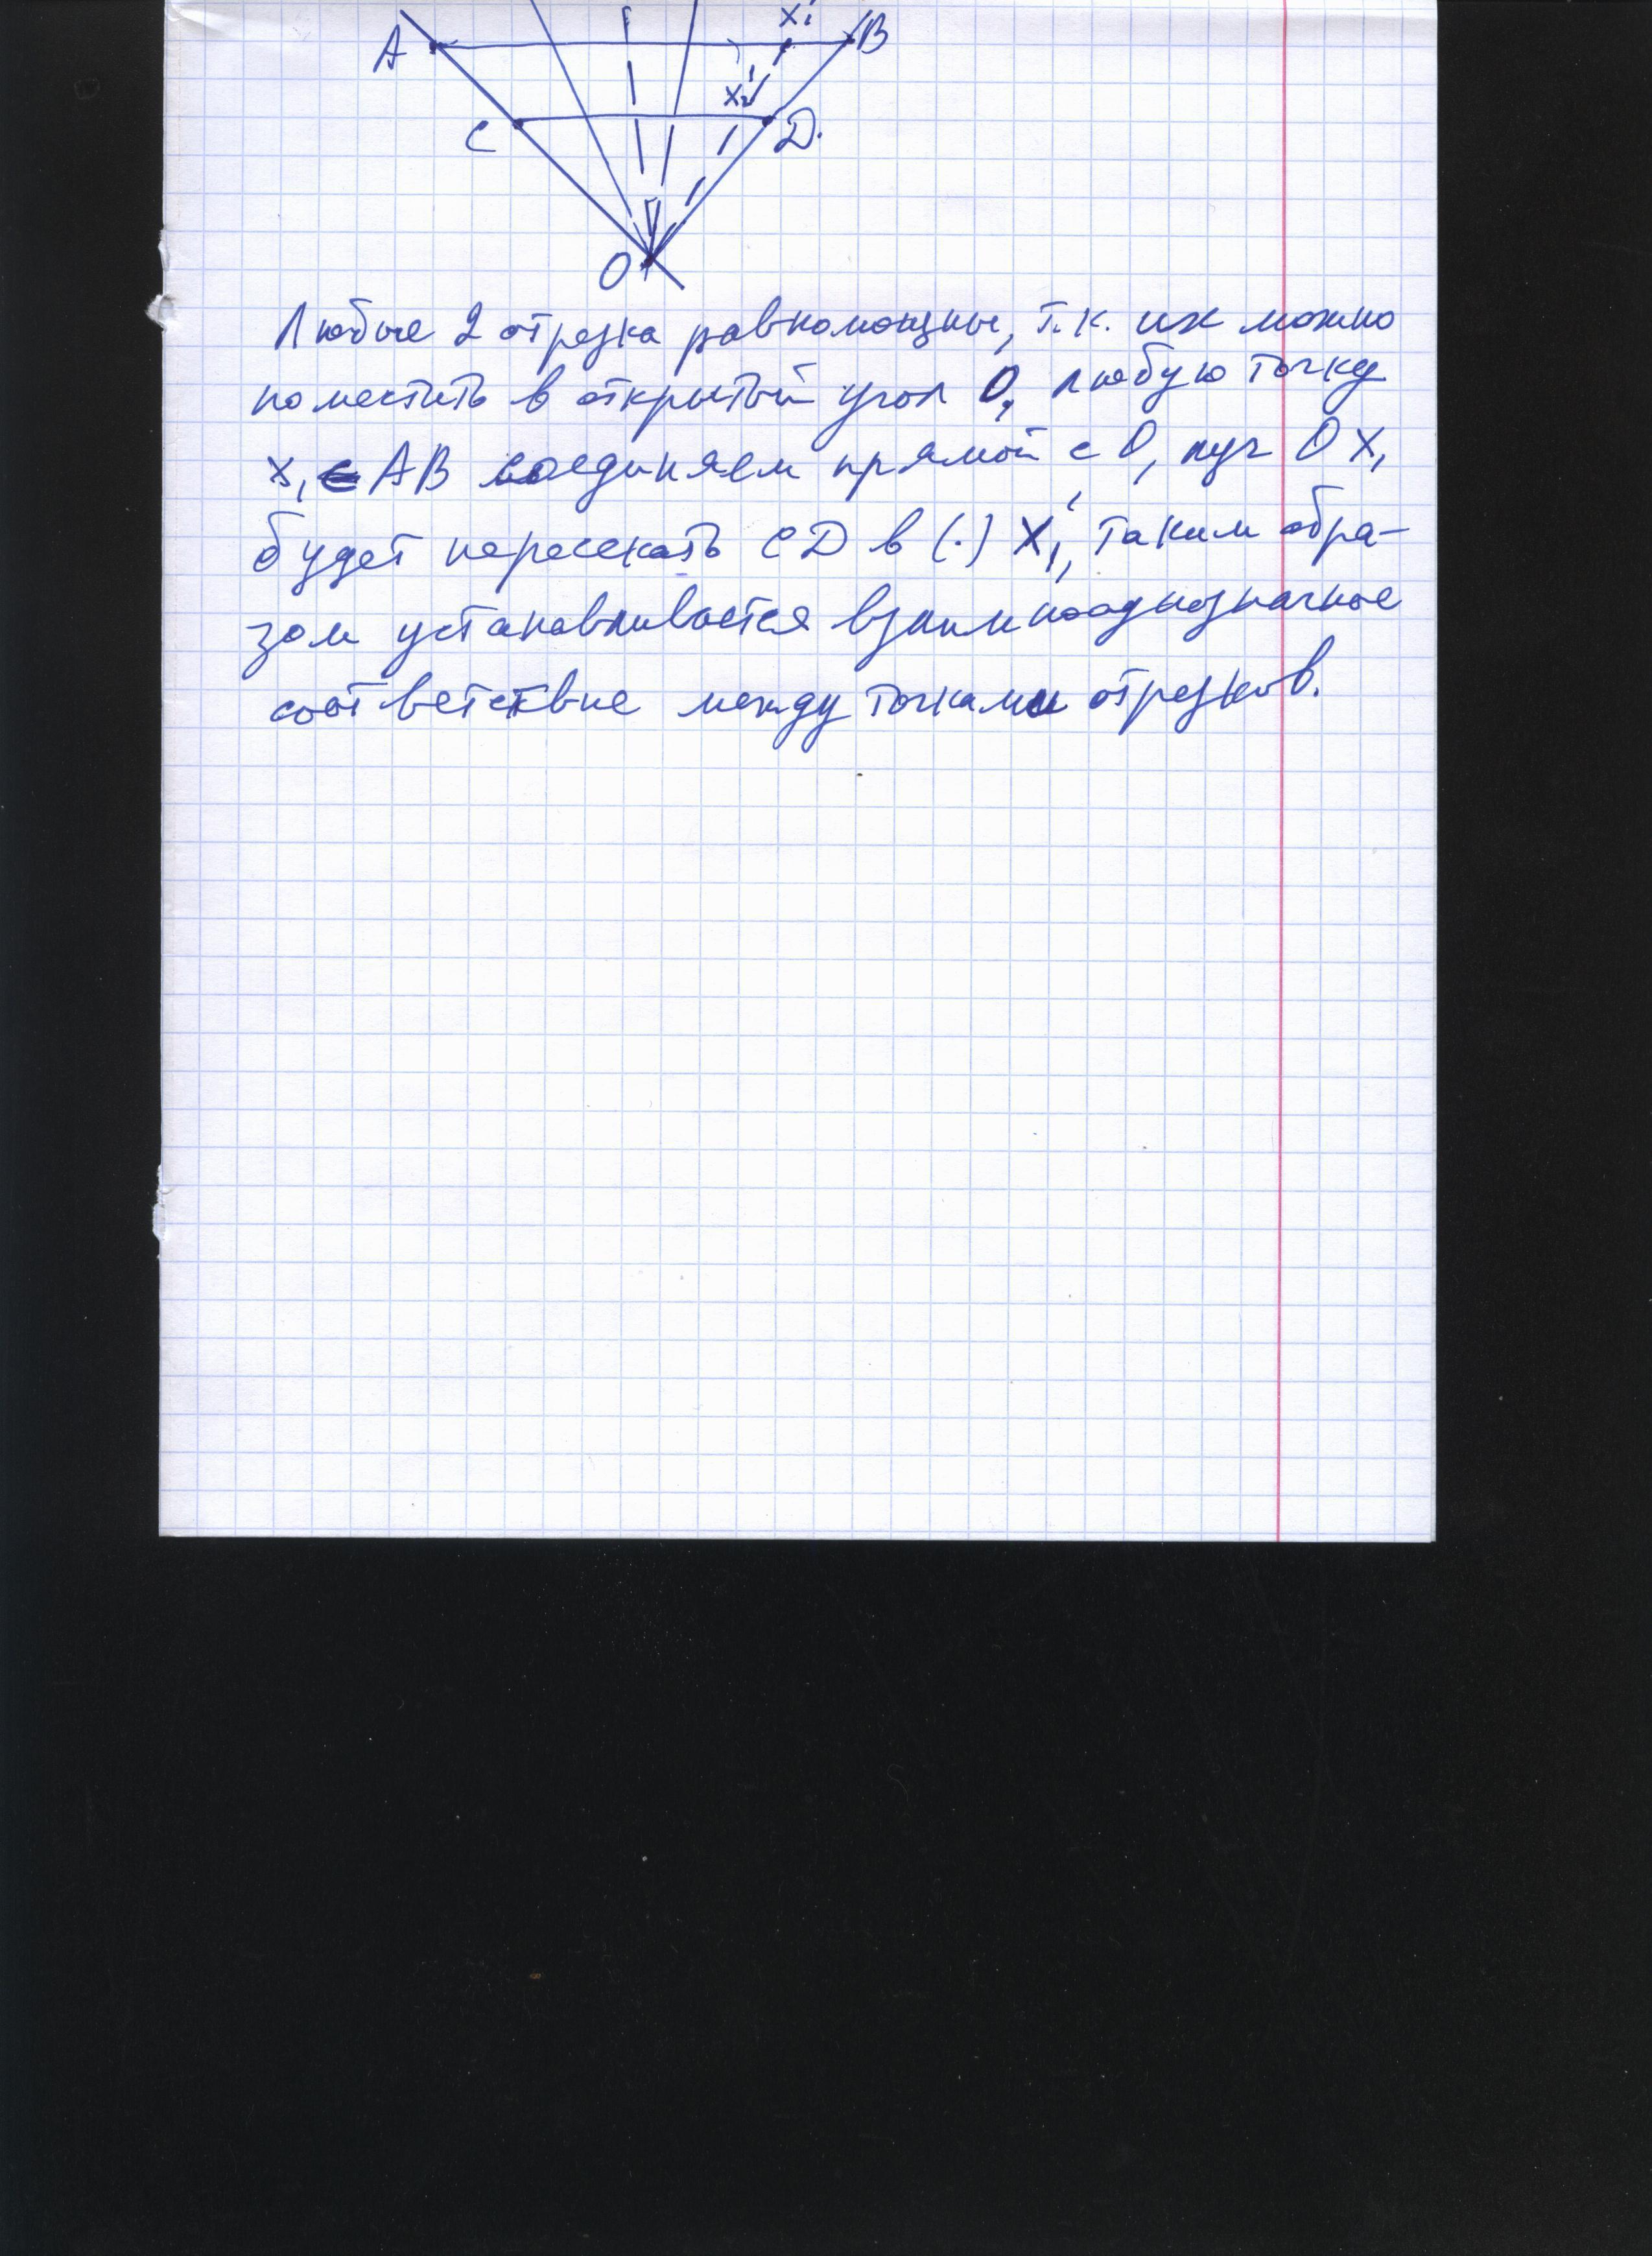 x₁'
A
B
x₂'
C
D.
O
Любые 2 отрезка равномощны, т.к. их можно
поместить в открытый угол O, любую точку
x₁ ∈ AB соединяем прямой с O, луч OX₁
будет пересекать CD в (·) X₁', таким обра-
зом устанавливается взаимнооднозначное
соответствие между точками отрезков.